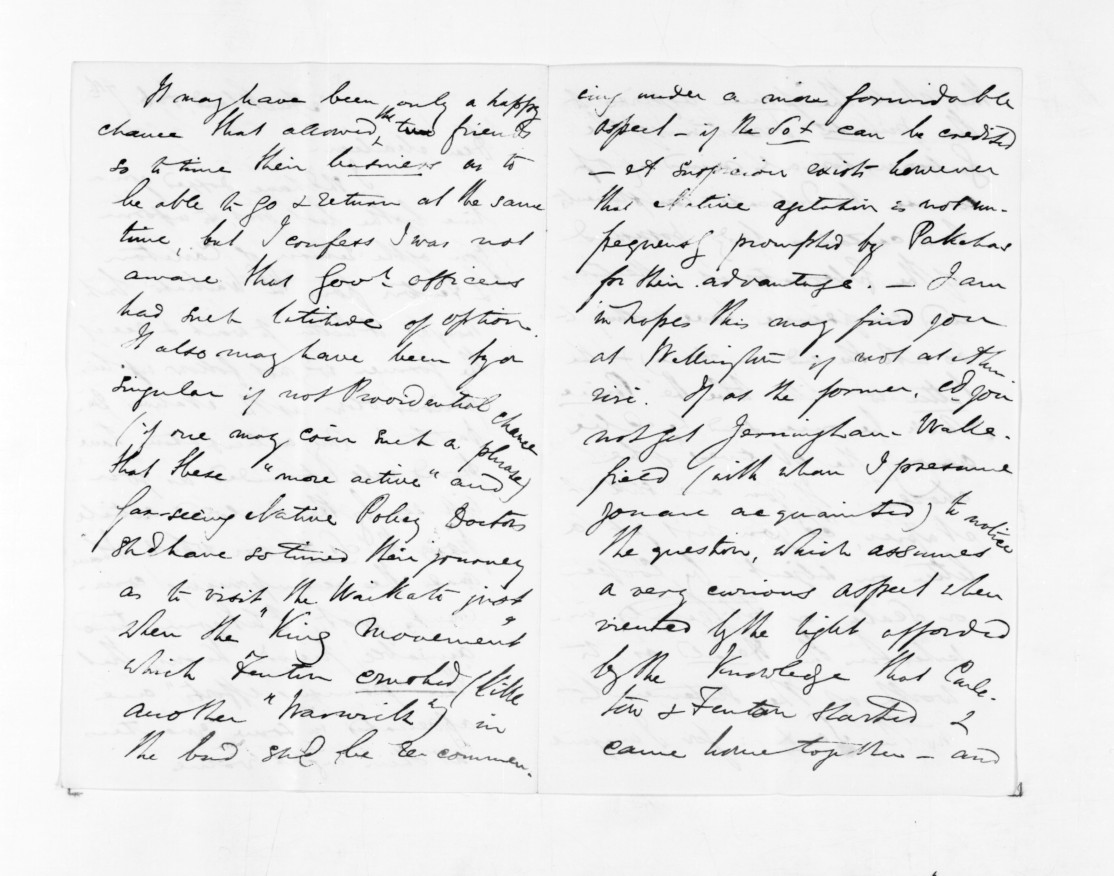 It may have been only a happy
chance that allowed the two friends
so to time their business as to
be able to go & return at the same
time, but I confess I was not
aware that Govt. officers
had such latitude of option.
It also may have been by a
singular if not Providential chance
(if one may coin such a phrase)
that these "more active" and
far-seeing Native Policy Doctors
shd have so timed their journey
as to visit the Waikato just
when the "King Movement"
which Fenton crushed (like
another "Warwick") in
the bud shd be re-commen-
cing under a more formidable
aspect - if the Sot can be credited
- A suspicion exists however
that Native agitation is not un-
frequently prompted by Pakehas
for their advantage. - I am
in hopes this may find you
at Wellington if not at Ahu-
riri. If at the former, cd you
not get Jerningham Wake-
field (with whom I presume
you are acquainted) to notice
the question, which assumes
a very curious aspect when
viewed by the light afforded
by the knowledge that Carle-
ton & Fenton started &
came home together - and